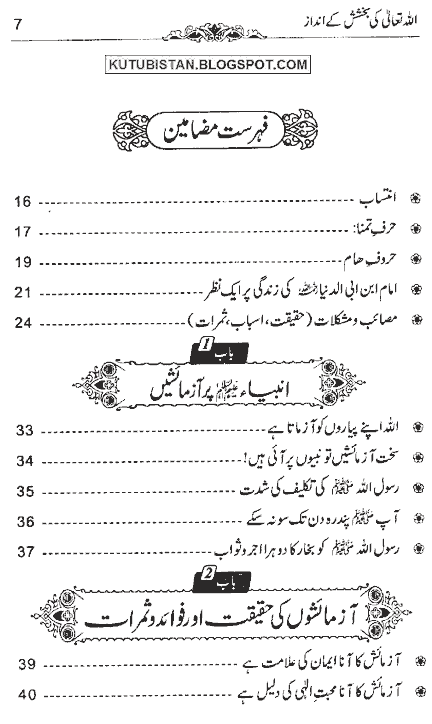 اللہ تعالیٰ کی بخشش کے انداز 7
KUTUBISTAN.BLOGSPOT.COM
فہرست مضامین
انتساب 16
حرفِ تمنا: 17
حروفِ ھام 19
امام ابن ابی الدنیا رحمۃ اللہ علیہ کی زندگی پر ایک نظر 21
مصائب و مشکلات (حقیقت، اسباب، ثمرات) 24
باب 1
انبیاء ﷺ پر آزمائشیں
اللہ اپنے پیاروں کو آزماتا ہے 33
سخت آزمائشیں تو نبیوں پر آئی ہیں! 34
رسول اللہ ﷺ کی تکلیف کی شدت 35
آپ ﷺ پندرہ دن تک سو نہ سکے 36
رسول اللہ ﷺ کو بخار کا دوہرا اجر و ثواب 37
باب 2
آزمائشوں کی حقیقت اور فوائد و ثمرات
آزمائش کا آنا ایمان کی علامت ہے 39
آزمائش کا آنا محبتِ الٰہی کی دلیل ہے 40